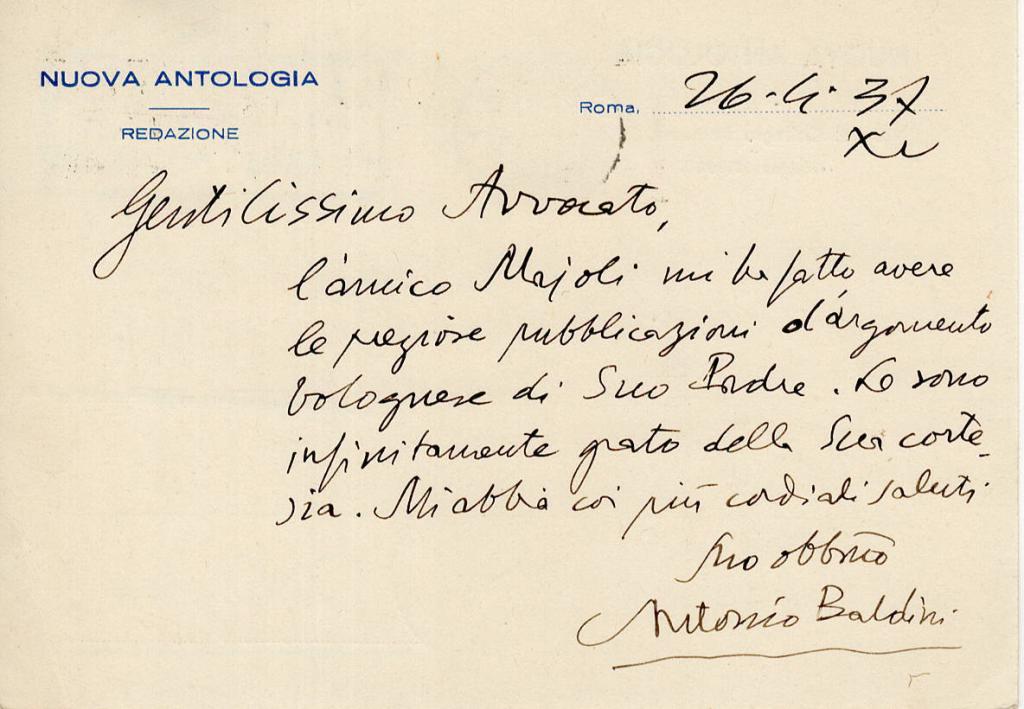 NUOVA ANTOLOGIA
REDAZIONE
Roma, 26.4.37
XV
Gentilissimo Avvocato,
l'amico Majoli mi ha fatto avere
le pregiose pubblicazioni d'argomento
bolognese di Suo Padre. Le sono
infinitamente grato della Sua corte-
sia. Mi abbia coi più cordiali saluti.
Suo obbmo
Antonio Baldini